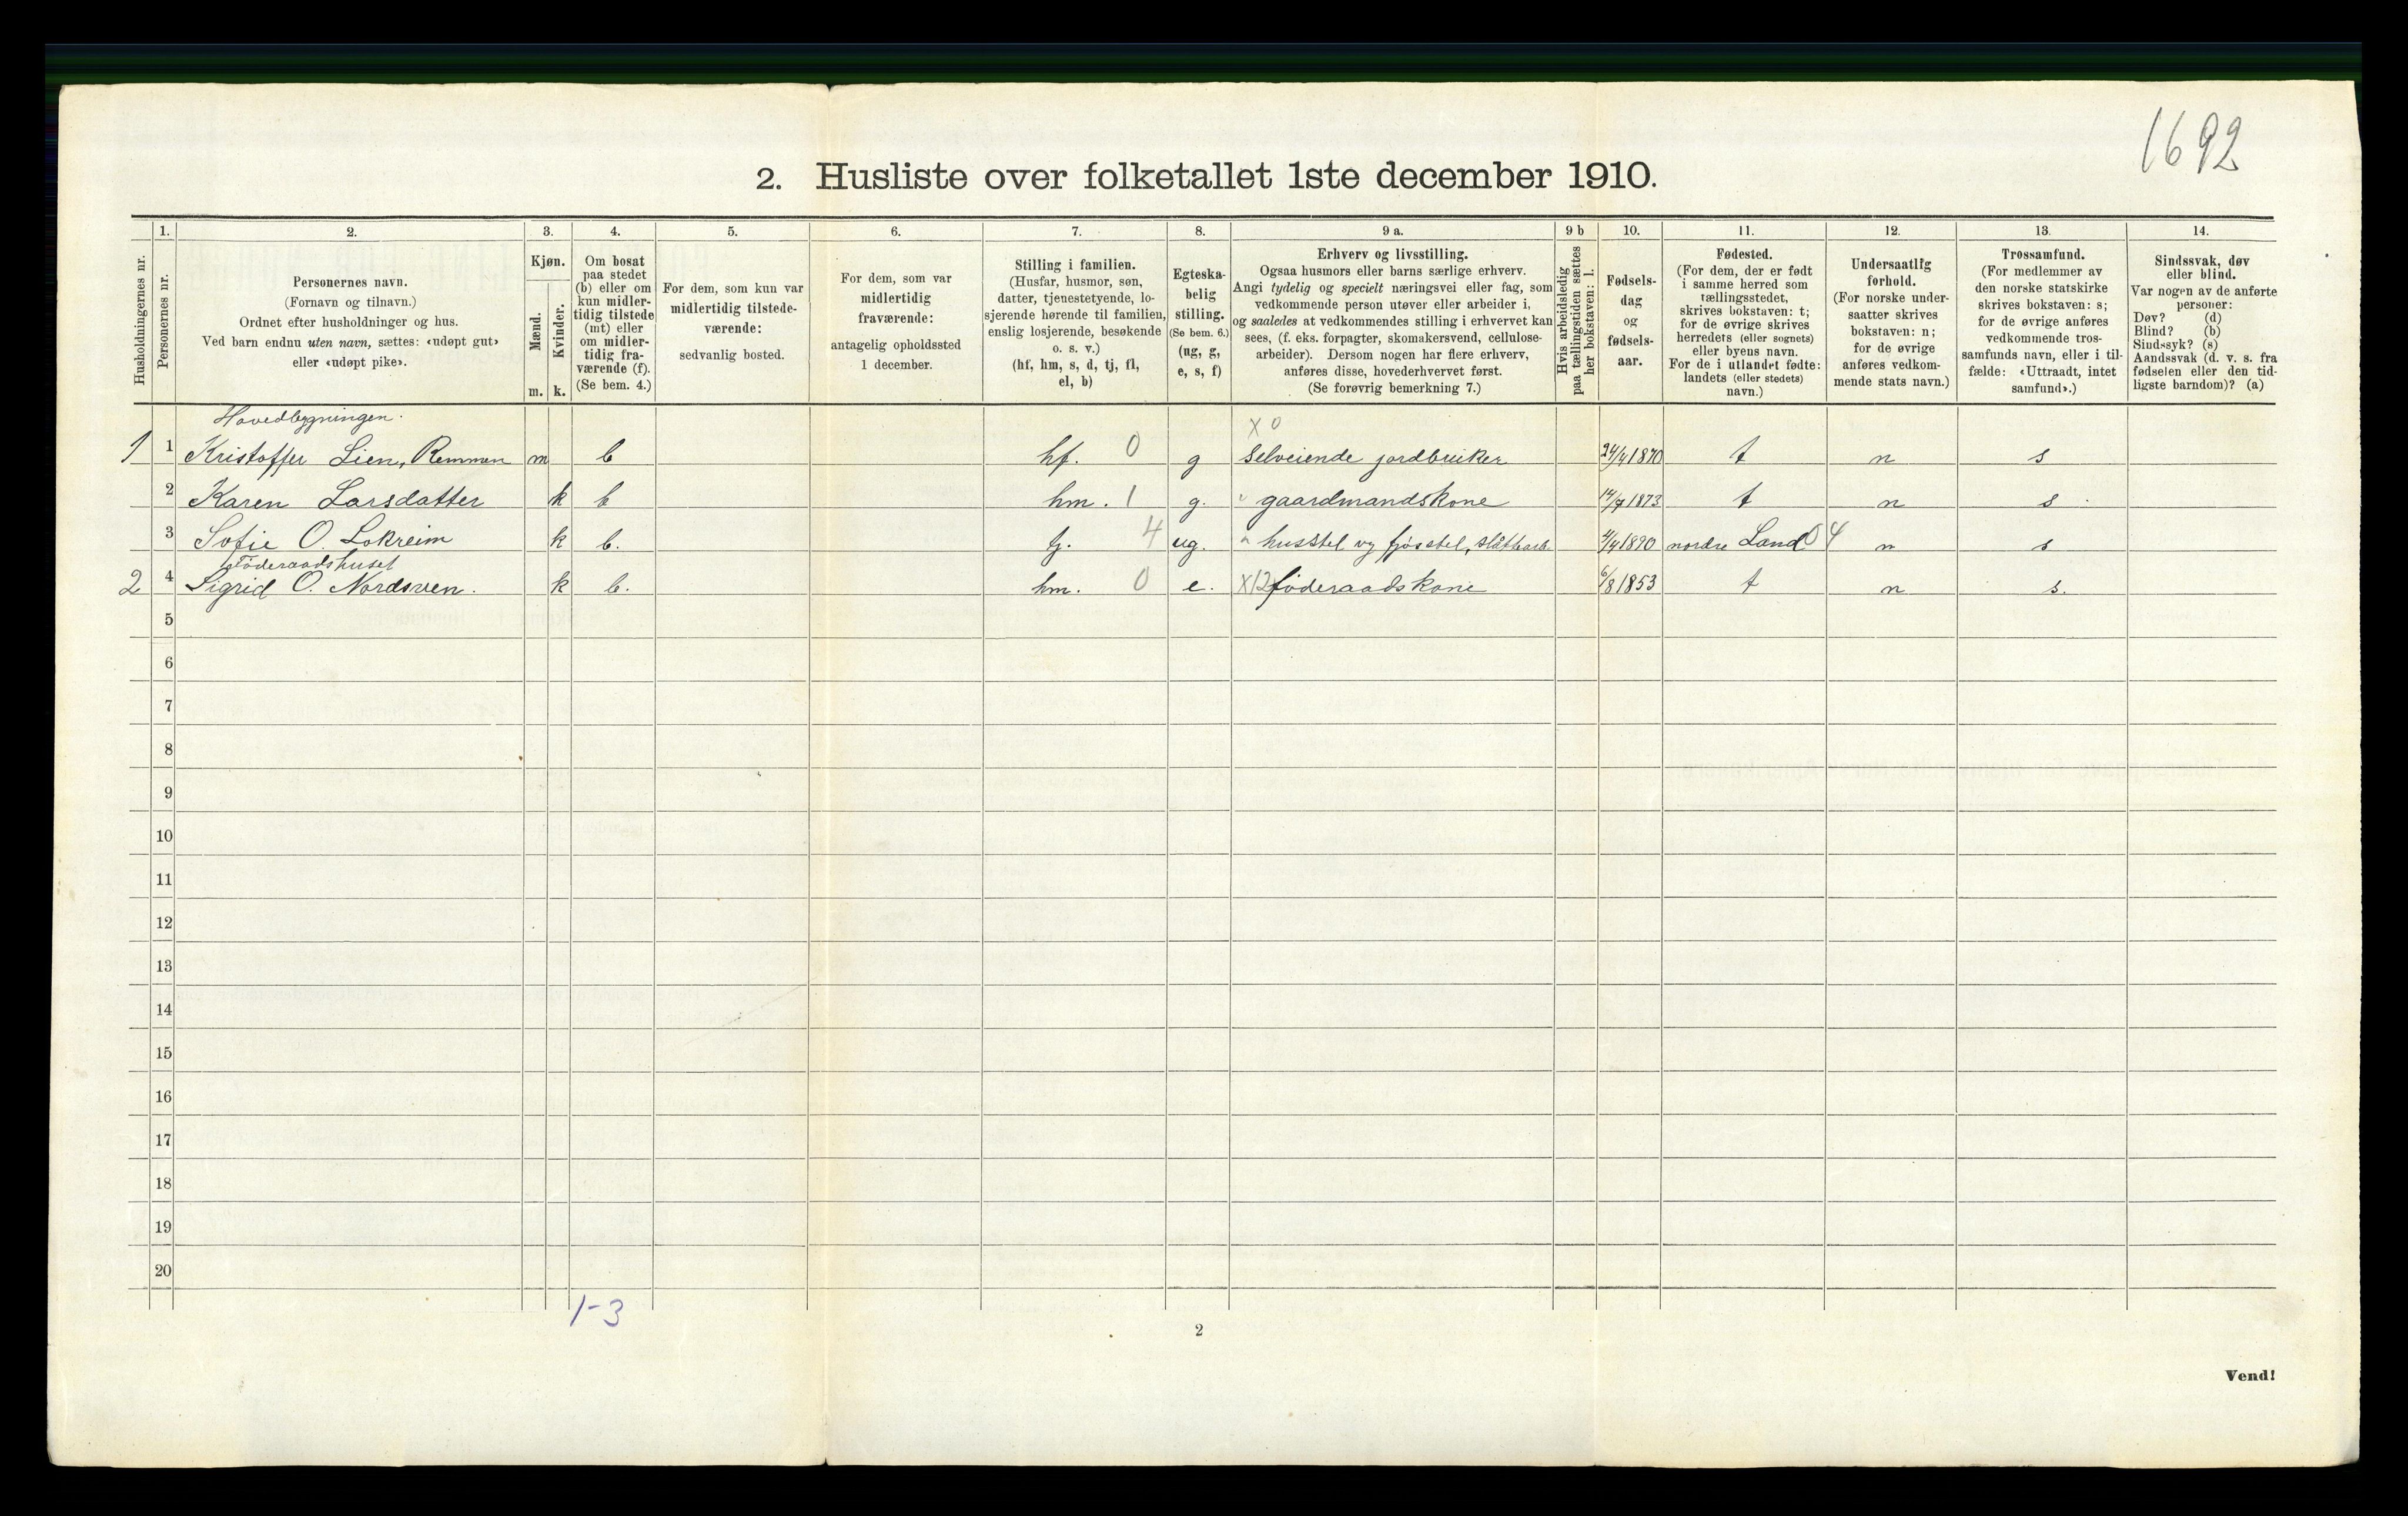 1692
2. Husliste over folketallet 1ste december 1910.
Husholdningernes nr.
1.
Personernes nr.
2.
Personernes navn.
(Fornavn og tilnavn.)
Ordnet efter husholdninger og hus.
Ved barn endnu uten navn, sættes: «udøpt gut»
eller «udøpt pike».
3.
Kjøn.
Mænd.
m.
Kvinder.
k.
4.
Om bosat
paa stedet
(b) eller om
kun midler-
tidig tilstede
(mt) eller
om midler-
tidig fra-
værende (f).
(Se bem. 4.)
5.
For dem, som kun var
midlertidig tilstede-
værende:
sedvanlig bosted.
6.
For dem, som var
midlertidig
fraværende:
antagelig opholdssted
1 december.
7.
Stilling i familien.
(Husfar, husmor, søn,
datter, tjenestetyende, lo-
sjerende hørende til familien,
enslig losjerende, besøkende
o. s. v.)
(hf, hm, s, d, tj, fl,
el, b)
8.
Egteska-
belig
stilling.
(Se bem. 6.)
(ug, g,
e, s, f)
9 a.
Erhverv og livsstilling.
Ogsaa husmors eller barns særlige erhverv.
Angi tydelig og specielt næringsvei eller fag, som
vedkommende person utøver eller arbeider i,
og saaledes at vedkommendes stilling i erhvervet kan
sees, (f. eks. forpagter, skomakersvend, cellulose-
arbeider). Dersom nogen har flere erhverv,
anføres disse, hovederhvervet først.
(Se forøvrig bemerkning 7.)
9 b
Hvis arbeidsledig
paa tællingstiden sættes
her bokstaven: l.
10.
Fødsels-
dag
og
fødsels-
aar.
11.
Fødested.
(For dem, der er født
i samme herred som
tællingsstedet,
skrives bokstaven: t;
for de øvrige skrives
herredets (eller sognets)
eller byens navn.
For de i utlandet fødte:
landets (eller stedets)
navn.)
12.
Undersaatlig
forhold.
(For norske under-
saatter skrives
bokstaven: n;
for de øvrige
anføres vedkom-
mende stats navn.)
13.
Trossamfund.
(For medlemmer av
den norske statskirke
skrives bokstaven: s;
for de øvrige anføres
vedkommende tros-
samfunds navn, eller i til-
fælde: «Uttraadt, intet
samfund».)
14.
Sindssvak, døv
eller blind.
Var nogen av de anførte
personer:
Døv? (d)
Blind? (b)
Sindssyk? (s)
Aandssvak (d. v. s. fra
fødselen eller den tid-
ligste barndom)? (a)
Hovedbygningen.
X 0
1 1 Kristoffer Lien, Remmen m b hf. 0 g Selveiende jordbruker 24/4 1870 t n s
2 Karen Larsdatter k b hm. 1 g. gaardmandskone 14/7 1873 t n s
3 Sofie O. Lokreim k b. tj. 4 ug. husstel og fjøsstel, slåttearb. 4/4 1890 nordre Land 04 n s
Föderaadshuset
2 4 Sigrid O. Nordsven. k b. hm. 0 e. X12 föderaadskone 6/8 1853 t n s.
5
6
7
8
9
10
11
12
13
14
15
16
17
18
19
20
1-3
2
Vend!